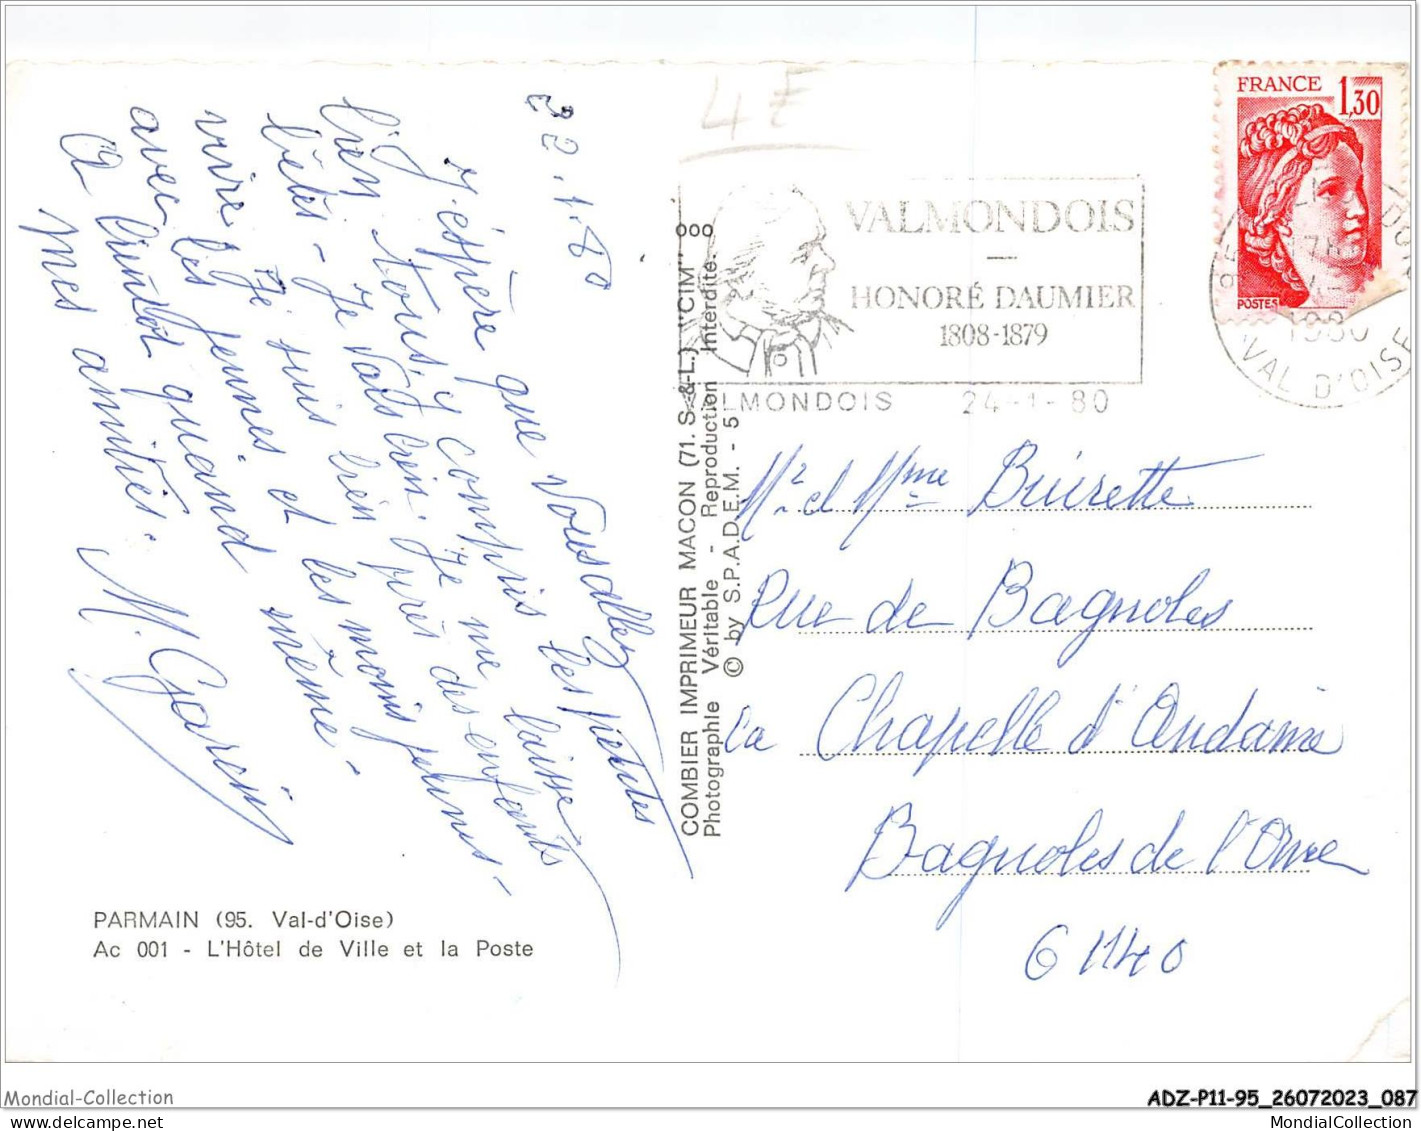 22.1.80
J'espère que vous allez
bien tous, y compris les petites
bêtes - Je vais bien. Je me laisse
vivre. Je suis bien près des enfants
avec les jeunes et les moins jeunes -
A bientôt quand même -
Mes amitiés.
M. Garcin
PARMAIN (95. Val-d'Oise)
Ac 001 - L'Hôtel de Ville et la Poste
COMBIER IMPRIMEUR MACON (71. S.-&-L.) "CIM"
Photographie Véritable - Reproduction Interdite.
© by S.P.A.D.E.M. - 5
4 F
VALMONDOIS
HONORÉ DAUMIER
1808-1879
VALMONDOIS 24-1-80
FRANCE
1,30
POSTES
1980
VAL D'OISE
Mr et Mme Buirette
Rue de Bagnoles
la Chapelle d'Andaine
Bagnoles de l'Orne
61140
Mondial-Collection
ADZ-P11-95_26072023_087
MondialCollection